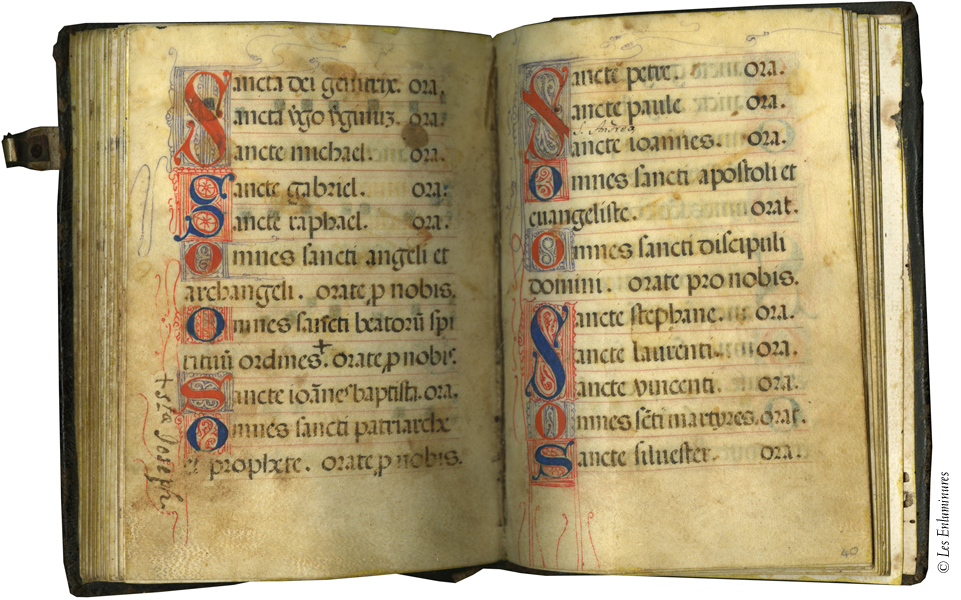 Sancta dei genitrix. ora.
Sancta v̄go v̄ginuꝫ. ora.
Sancte michael. ora.
Sancte gabriel. ora.
Sancte raphael. ora.
Omnes sancti angeli et
archangeli. orate ꝓ nobis.
Omnes sancti beatorū spi
rituū ordines. + orate ꝓ nobis.
Sancte ioānes baptista. ora.
Omnes sancti patriarche
et prophete. orate ꝓ nobis.
+ Sta Joseph
Sancte petre. ora.
Sancte paule. ora.
S. Andrea
Sancte ioannes. ora.
Omnes sancti apostoli et
euangeliste. orat.
Omnes sancti discipuli
domini. orate pro nobis.
Sancte stephane. ora.
Sancte laurenti. ora.
Sancte vincenti. ora.
Omnes sc̄ti martyres. orat.
Sancte siluester. ora.
40
© Les Enluminures